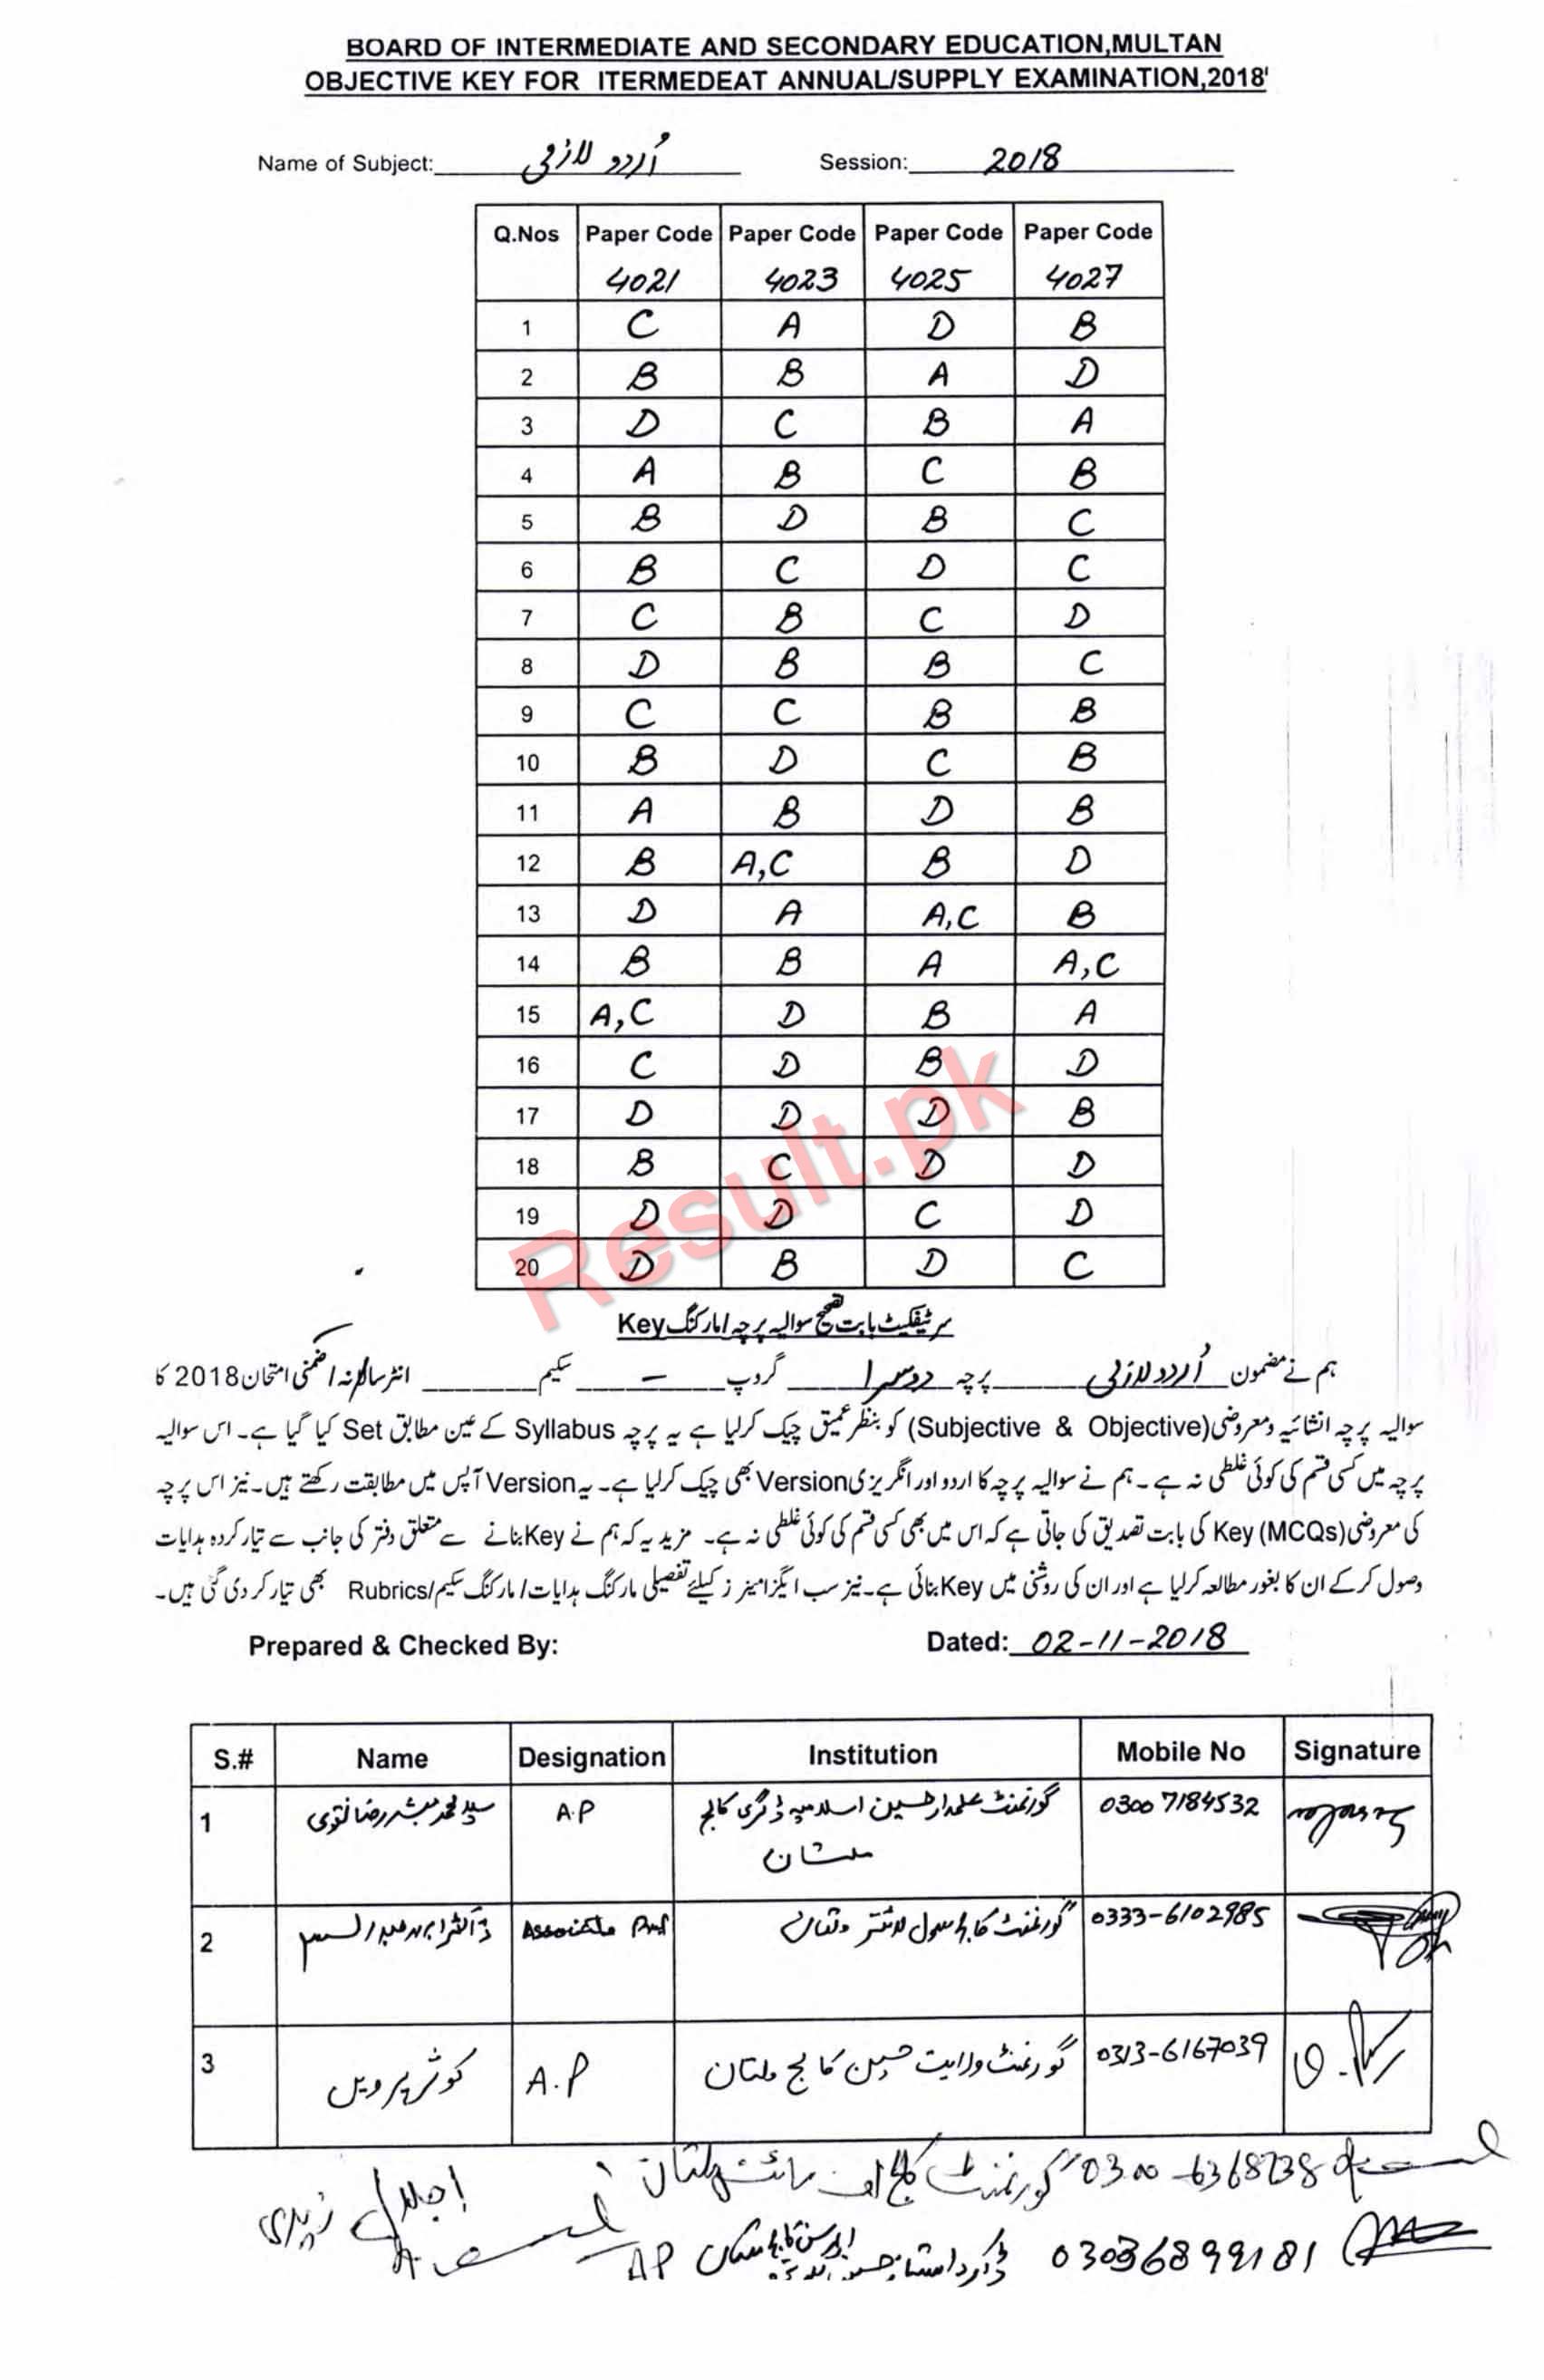 BOARD OF INTERMEDIATE AND SECONDARY EDUCATION,MULTAN
OBJECTIVE KEY FOR ITERMEDEAT ANNUAL/SUPPLY EXAMINATION,2018'
Name of Subject: اُردو لازمی Session: 2018
Q.Nos Paper Code Paper Code Paper Code Paper Code
4021 4023 4025 4027
1 C A D B
2 B B A D
3 D C B A
4 A B C B
5 B D B C
6 B C D C
7 C B C D
8 D B B C
9 C C B B
10 B D C B
11 A B D B
12 B A,C B D
13 D A A,C B
14 B B A A,C
15 A,C D B A
16 C D B D
17 D D D B
18 B C D D
19 D D C D
20 D B D C
Result.pk
سرٹیفکیٹ بابت تصحیح سوالیہ پرچہ/مارکنگ Key
ہم نے مضمون اُردو لازمی پرچہ دوسرا گروپ - سکیم انٹر سالانہ/ضمنی امتحان 2018 کا
سوالیہ پرچہ انشائیہ ومعروضی(Subjective & Objective) کو بنظر عمیق چیک کرلیا ہے یہ پرچہ Syllabus کے عین مطابق Set کیا گیا ہے۔ اس سوالیہ
پرچہ میں کسی قسم کی کوئی غلطی نہ ہے۔ ہم نے سوالیہ پرچہ کا اردو اور انگریزی Version بھی چیک کرلیا ہے۔ یہ Version آپس میں مطابقت رکھتے ہیں۔ نیز اس پرچہ
کی معروضی Key (MCQs) کی بابت تصدیق کی جاتی ہے کہ اس میں بھی کسی قسم کی کوئی غلطی نہ ہے۔ مزید یہ کہ ہم نے Key بنانے سے متعلق دفتر کی جانب سے تیار کردہ ہدایات
وصول کرکے ان کا بغور مطالعہ کرلیا ہے اور ان کی روشنی میں Key بنائی ہے۔ نیز سب ایگزامینرز کیلئے تفصیلی مارکنگ ہدایات/مارکنگ سکیم/Rubrics بھی تیار کردی گئی ہیں۔
Prepared & Checked By: Dated: 02-11-2018
S.# Name Designation Institution Mobile No Signature
1 سید محمد مبشر رضا نقوی A.P گورنمنٹ علمدار حسین اسلامیہ ڈگری کالج 0300 7184532
ملتان
2 Associate Prof گورنمنٹ کالج سول لائنز ملتان 0333-6102985
3 کوثر پروین A.P گورنمنٹ ولایت حسین کالج ملتان 0313-6167039
گورنمنٹ کالج آف سائنس ملتان 0300-6368738
AP 03036899181